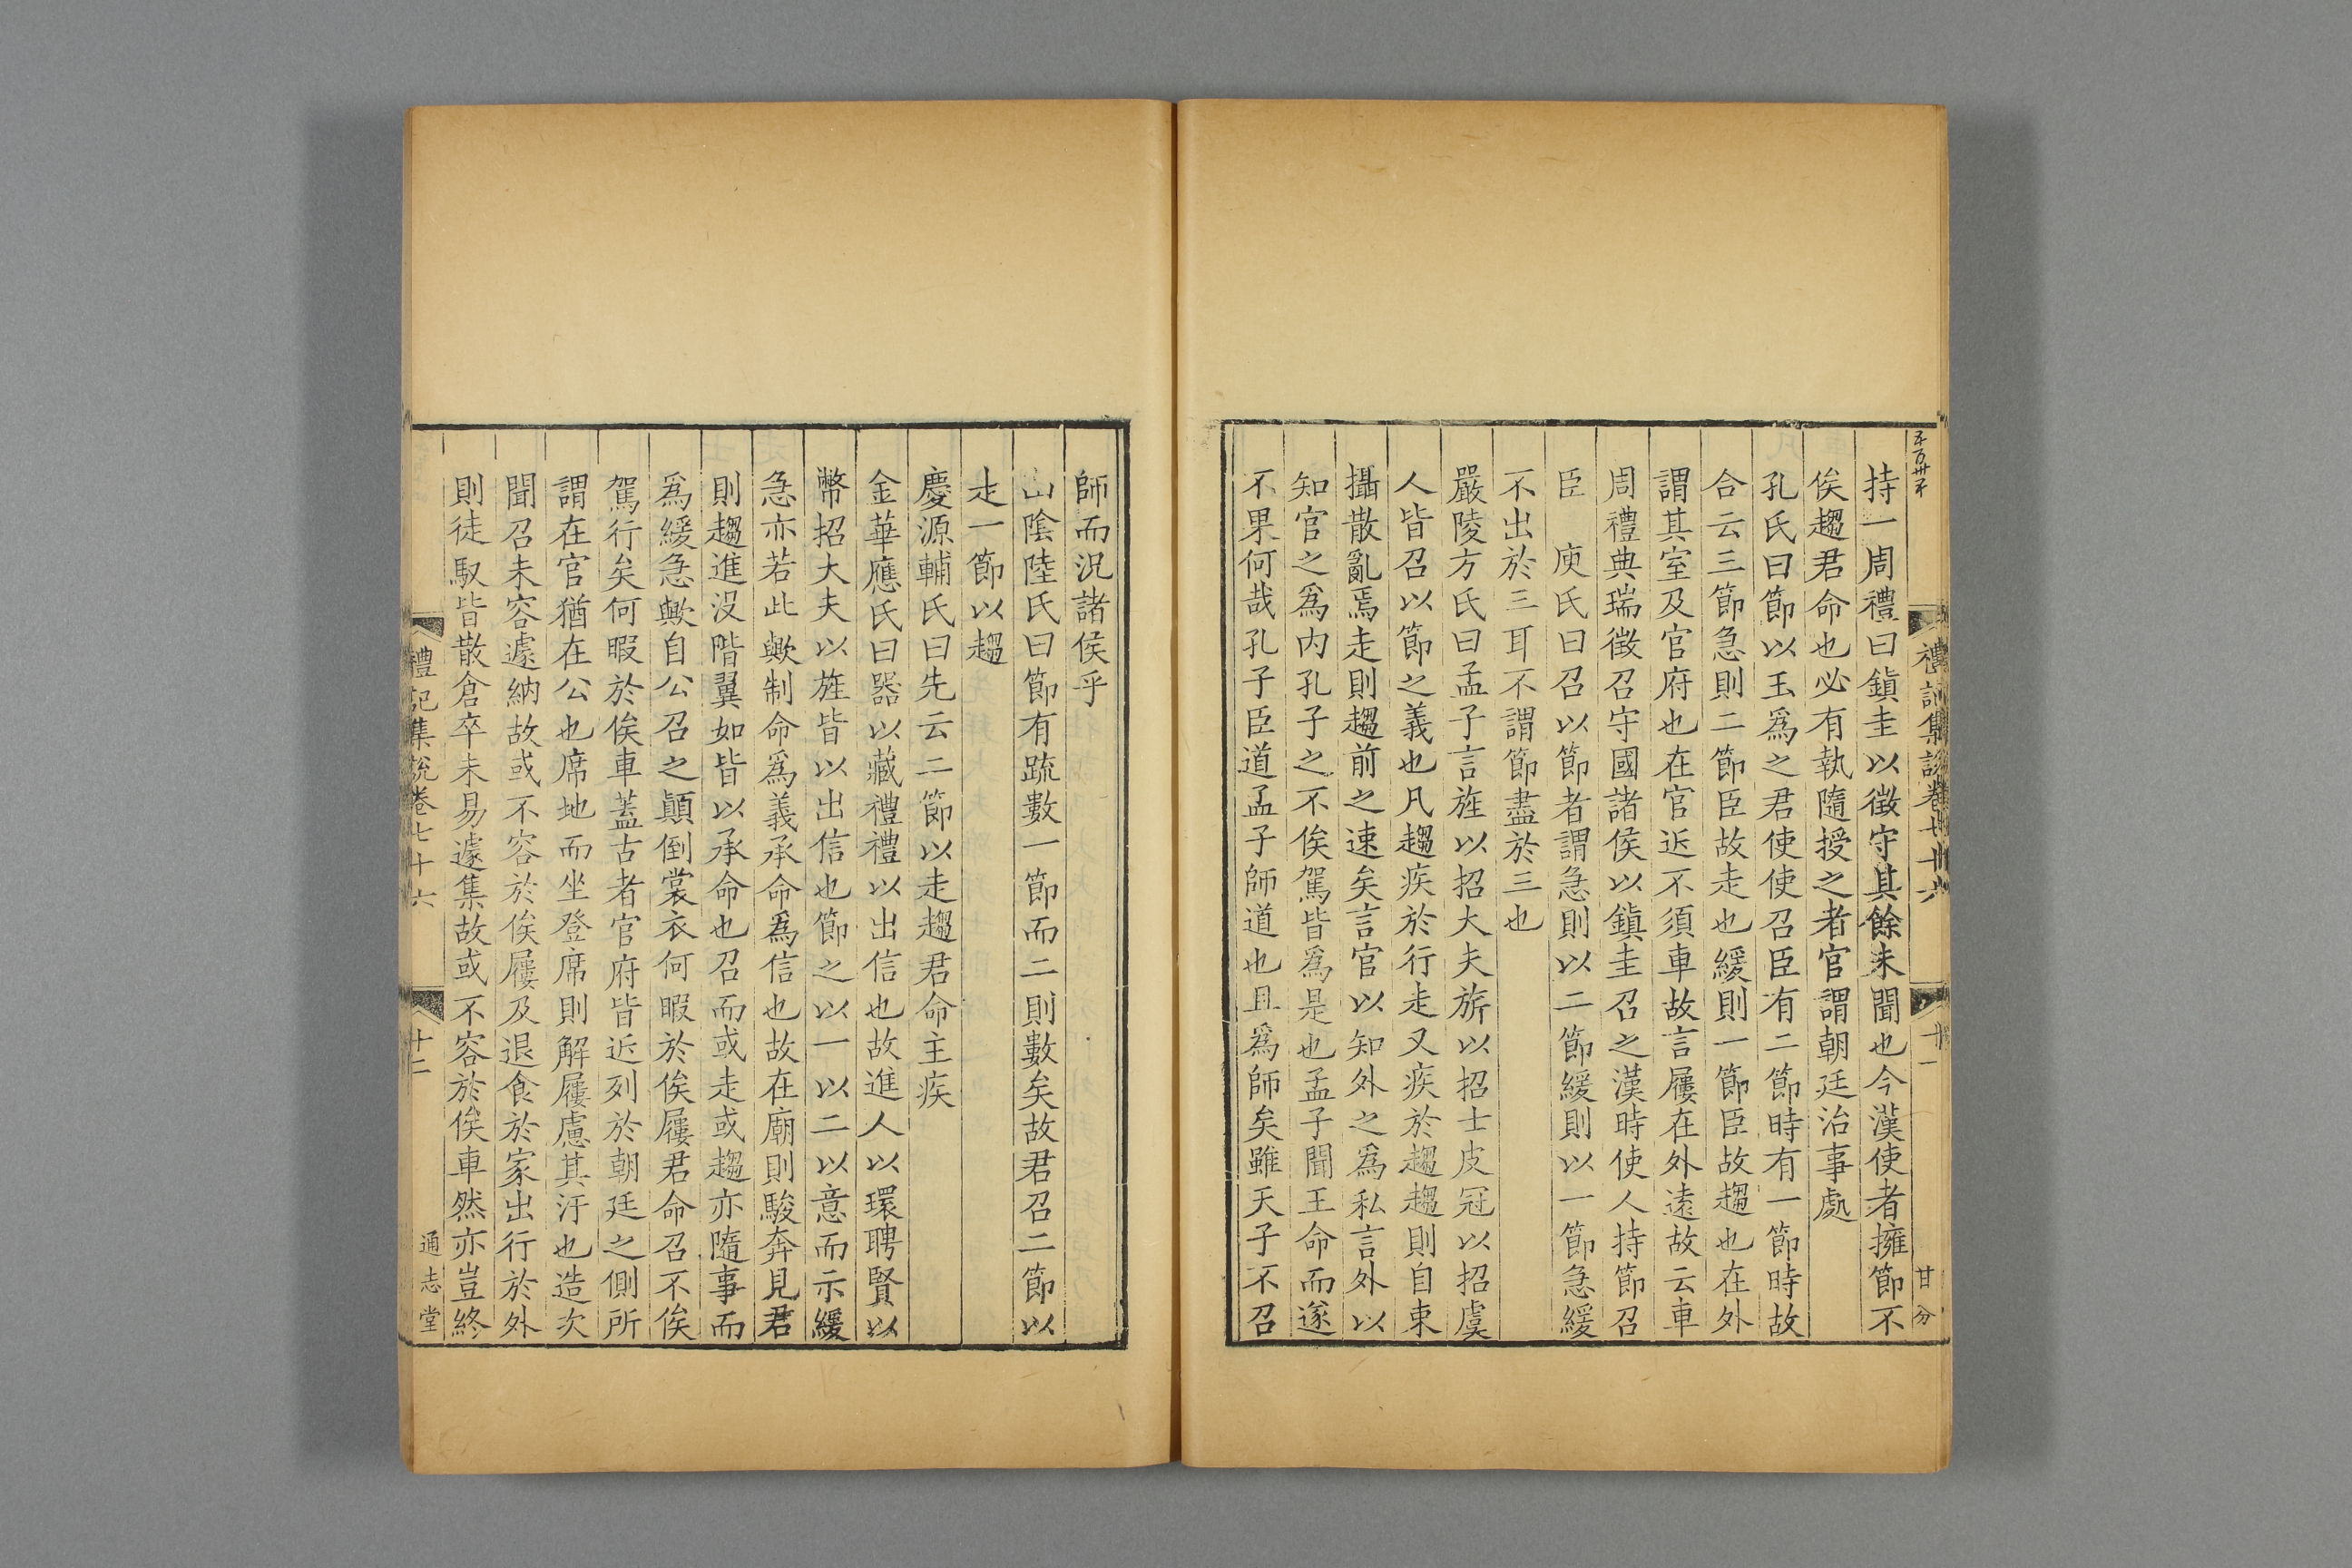 持一周禮曰鎮圭以徵守其餘未聞也今漢使者擁節不
俟趨君命也必有執隨授之者官謂朝廷治事處
孔氏曰節以玉爲之君使使召臣有二節時有一節時故
合云三節急則二節臣故走也緩則一節臣故趨也在外
謂其室及官府也在官近不須車故言屨在外遠故云車
周禮典瑞徵召守國諸侯以鎮圭召之漢時使人持節召
臣　庾氏曰召以節者謂急則以二節緩則以一節急緩
不出於三耳不謂節盡於三也
嚴陵方氏曰孟子言旌以招大夫旂以招士皮冠以招虞
人皆召以節之義也凡趨疾於行走又疾於趨趨則自東
攝散亂焉走則趨前之速矣言官以知外之爲私言外以
知官之爲内孔子之不俟駕皆爲是也孟子聞王命而遂
不果何哉孔子臣道孟子師道也且爲師矣雖天子不召
師而況諸侯乎
山陰陸氏曰節有疏數一節而二則數矣故君召二節以
走一節以趨
慶源輔氏曰先云二節以走趨君命主疾
金華應氏曰器以藏禮禮以出信也故進人以環聘賢以
幣招大夫以旌皆以出信也節之以一以二以意而示緩
急亦若此歟制命爲義承命爲信也故在廟則駿奔見君
則趨進没階翼如皆以承命也召而或走或趨亦隨事而
爲緩急歟自公召之顛倒裳衣何暇於俟屨君命召不俟
駕行矣何暇於俟車蓋古者官府皆近列於朝廷之側所
謂在官猶在公也席地而坐登席則解屨慮其汙也造次
聞召未容遽納故或不容於俟屨及退食於家出行於外
則徒馭皆散倉卒未易遽集故或不容於俟車然亦豈終
禮記集説卷七十六
十一
甘分
禮記集説卷七十六
十二
通志堂